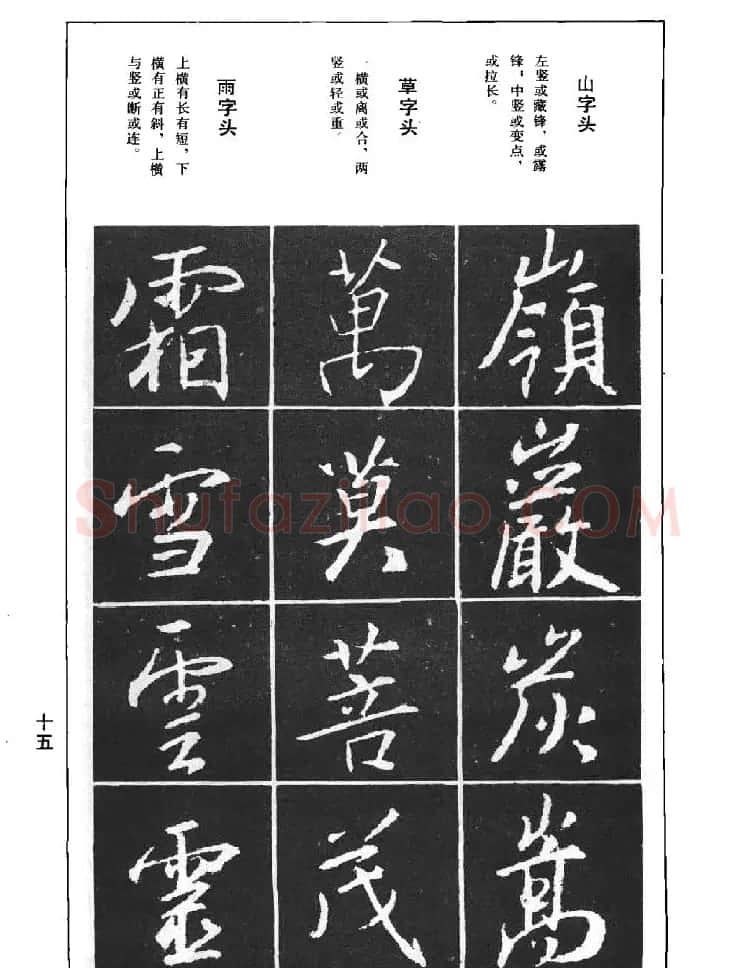 山字头
左竖或藏锋，或露
锋，中竖或变点，
或拉长。
草字头
一横或离或合，两
竖或轻或重。
雨字头
上横有长有短，下
横有正有斜，上横
与竖或断或连。
嶺
巖
炭
嵩
萬
莫
菩
茂
霜
雪
雲
靈
十五
Shufaziliao.COM